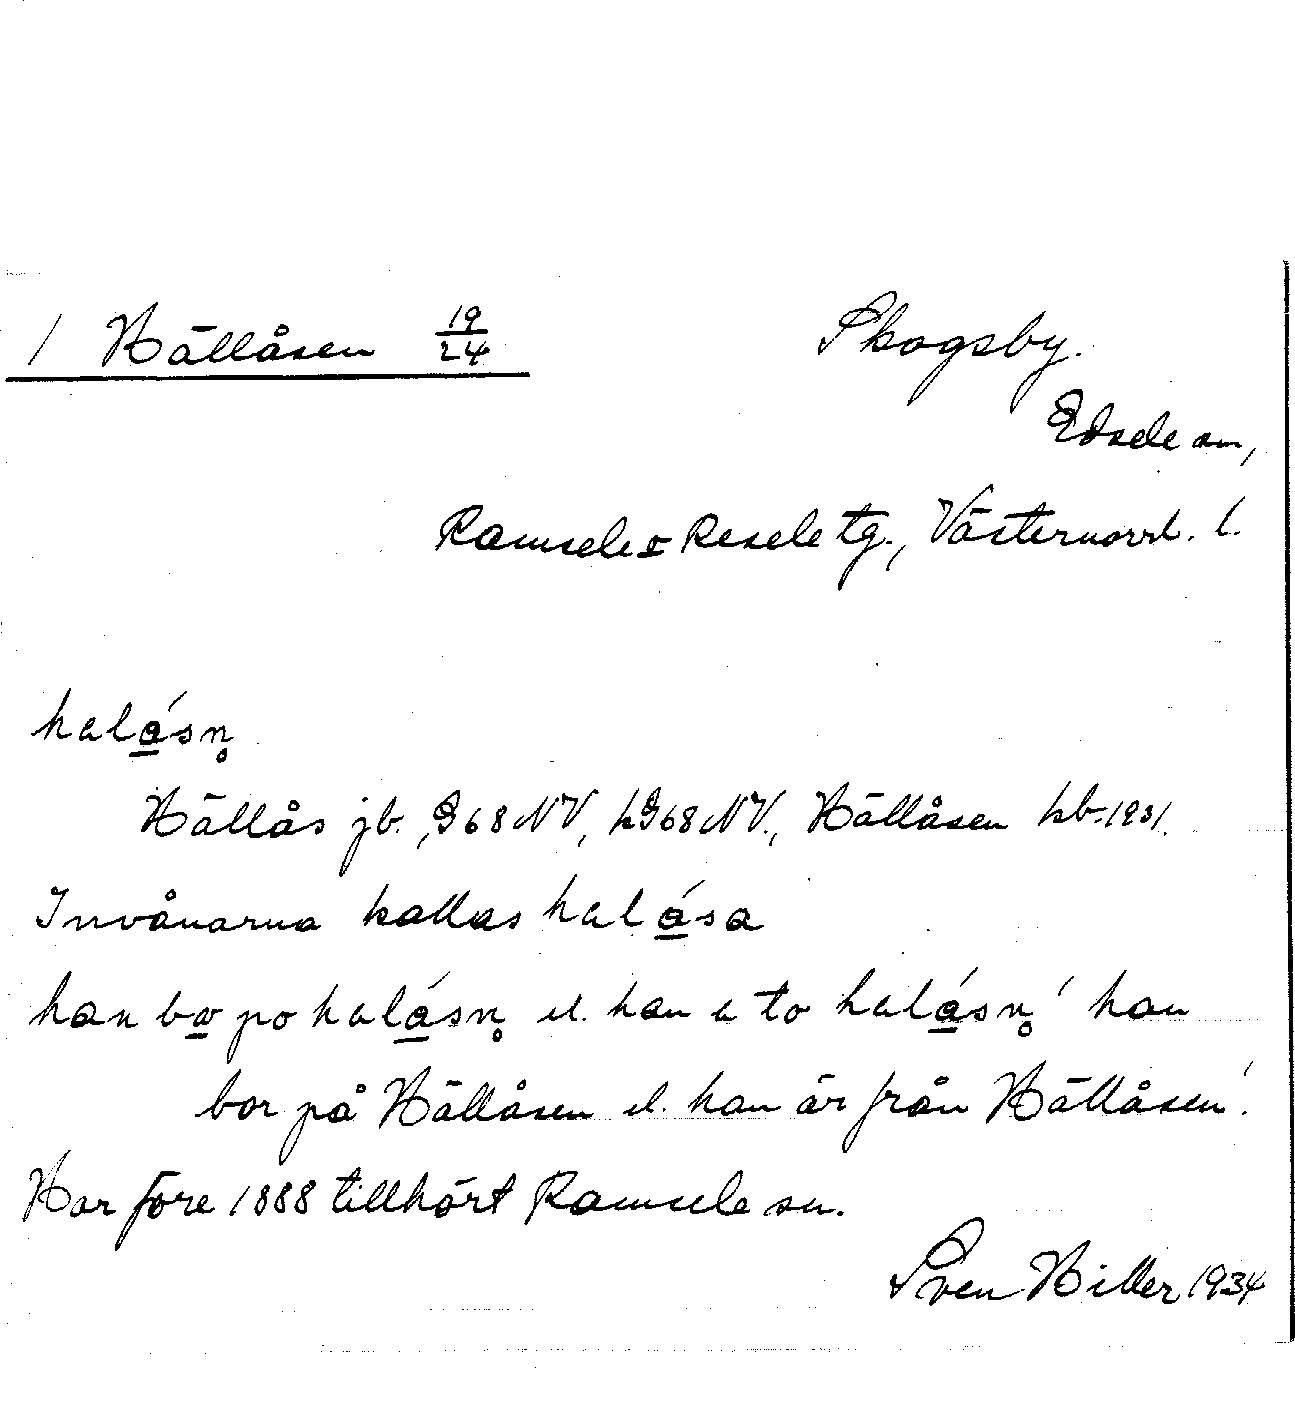 / Hällåsen 19/24
Skogsby.
Edsele sn,
Ramsele o Resele tg., Västernorrl. l.
halåsn̥
Hällås jb., G68NV, hG68NV., Hällåsen hb. 1931.
Invånarna kallas halåsa
han bo po halåsn̥ el. han a to halåsn̥ ' han
bor på Hällåsen el. han är från Hällåsen'.
Har före 1888 tillhört Ramsele sn.
Sven Hiller 1934